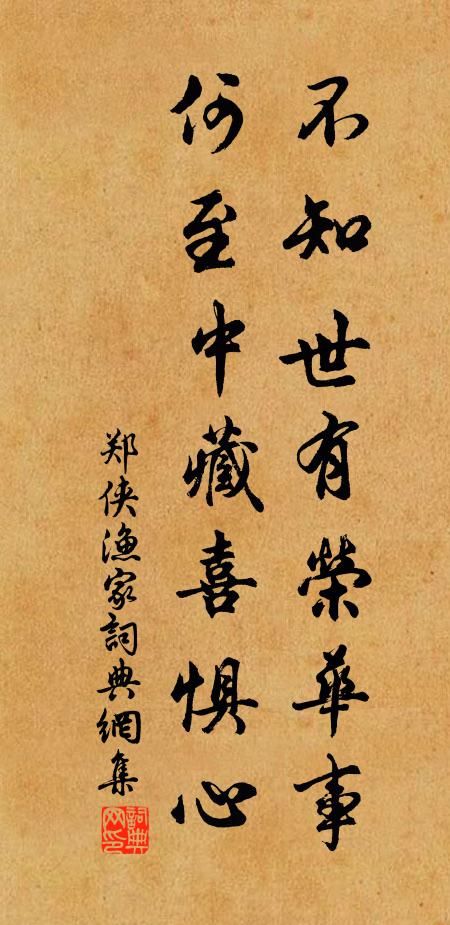 不知世有榮華事
何至中藏喜惧心
郑侠渔家詞典網集
詞典網印